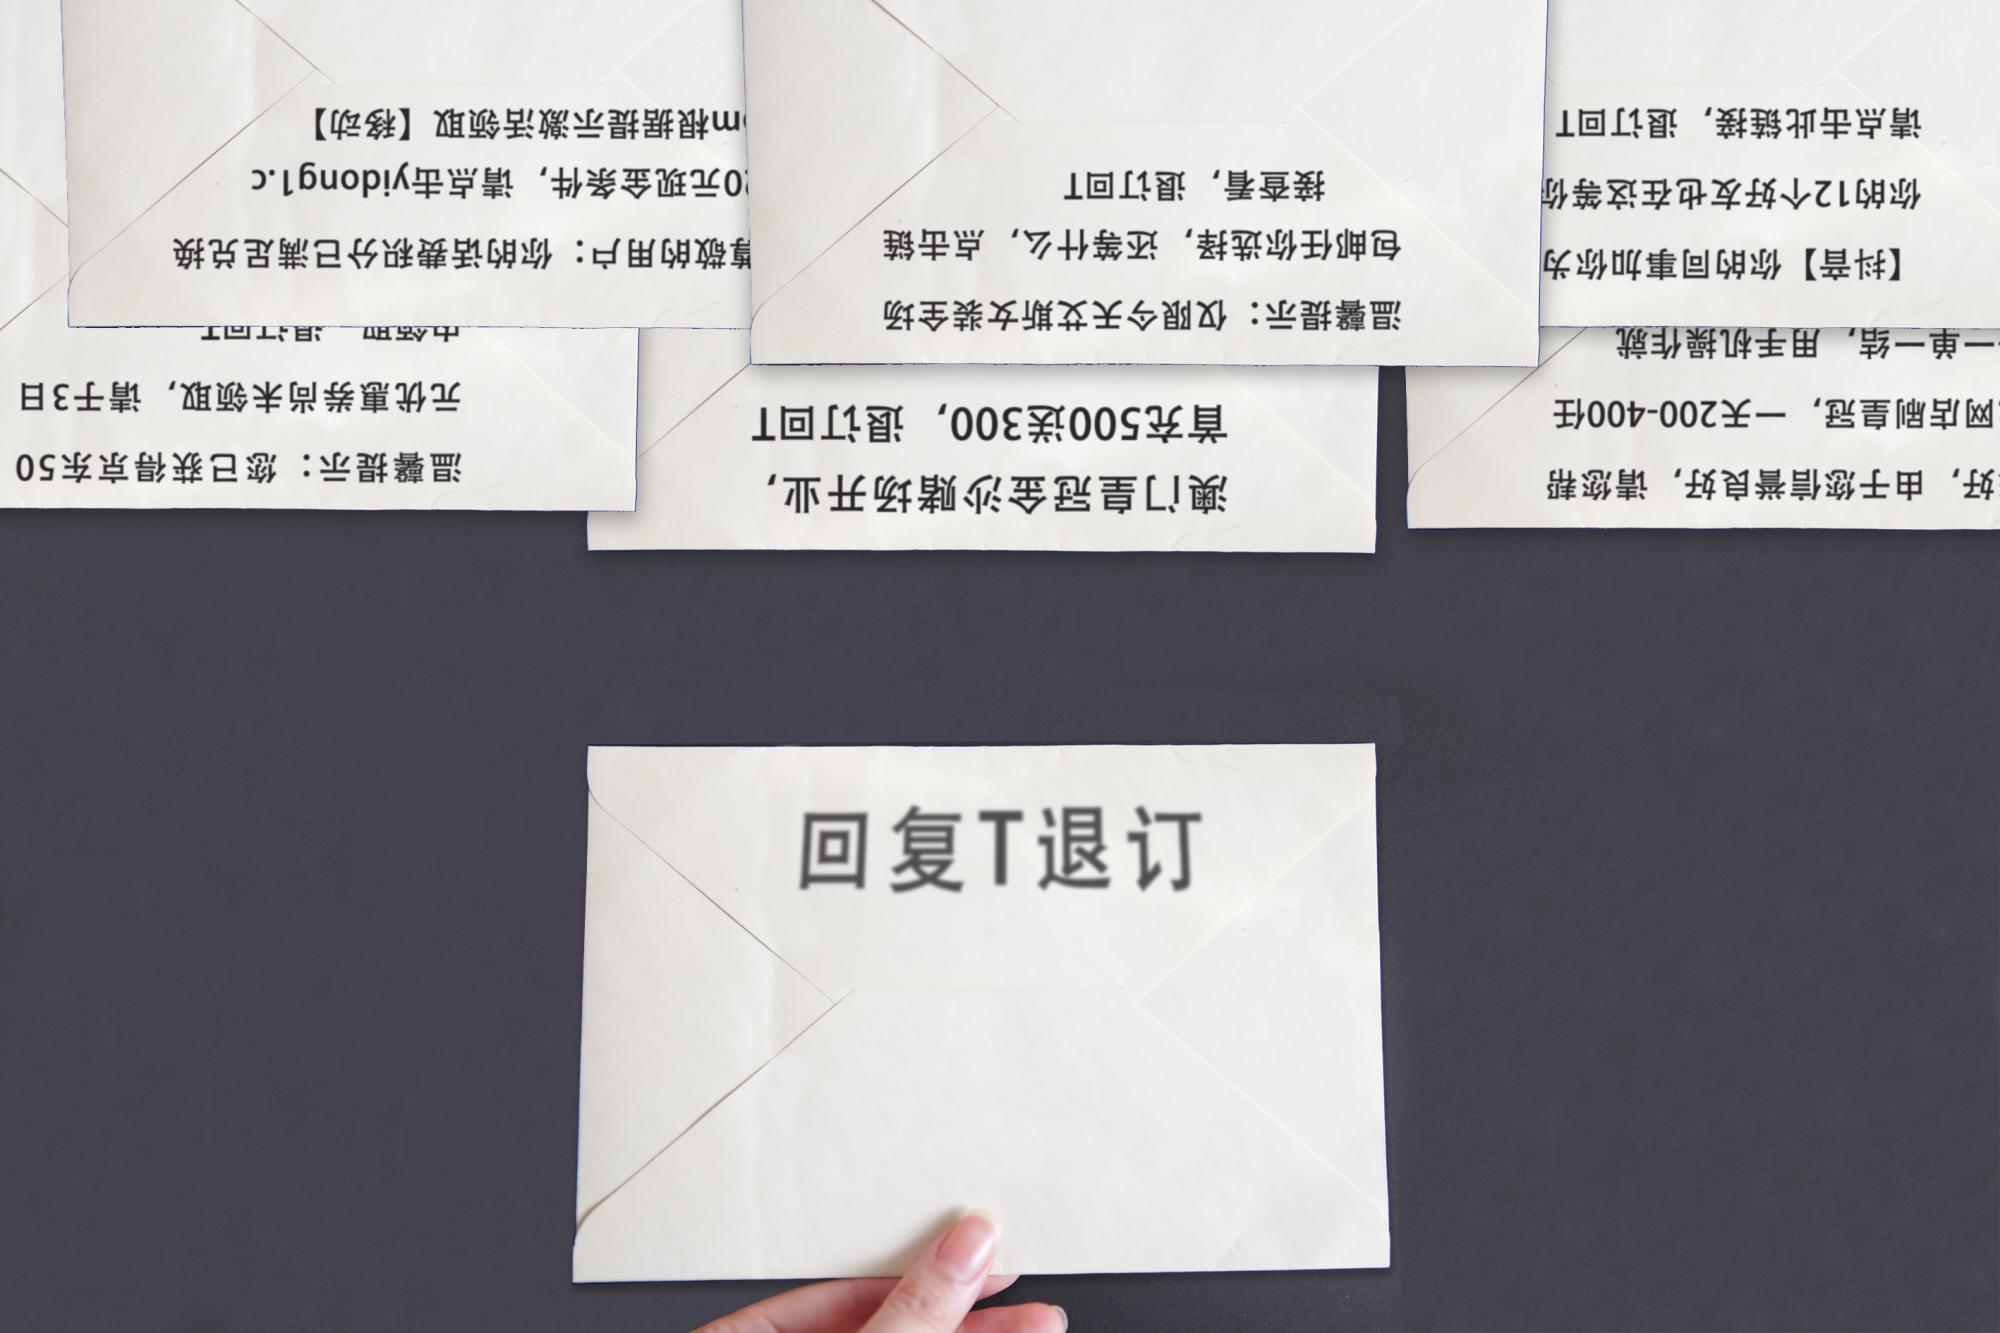 尊敬的用户：你的话费积分已满足兑换
20元现金条件，请点击yidong1.c
om根据提示激活领取【移动】
温馨提示：仅限今天艾斯女装全场
包邮任你选择，还等什么，点击链
接查看，退订回T
【抖音】你的同事加你为
你的12个好友也在这等你
请点击此链接，退订回T
温馨提示：您已获得京东50
元优惠券尚未领取，请于3日
内领取，退订回T
澳门皇冠金沙赌场开业，
首充500送300，退订回T
好，由于您信誉良好，请您帮
网店刷皇冠，一天200-400任
一单一结，用手机操作就
回复T退订